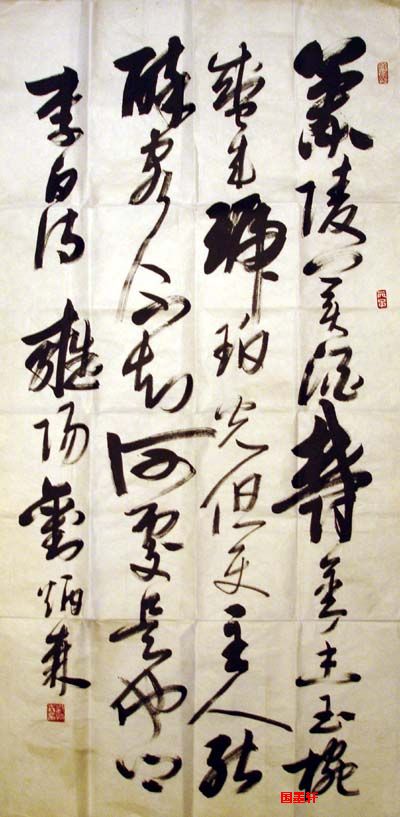 蘭陵美酒鬱金香玉椀
盛来琥珀光但使主人能
醉客不知何處是他鄉
李白诗 雝陽劉炳森
国墨轩